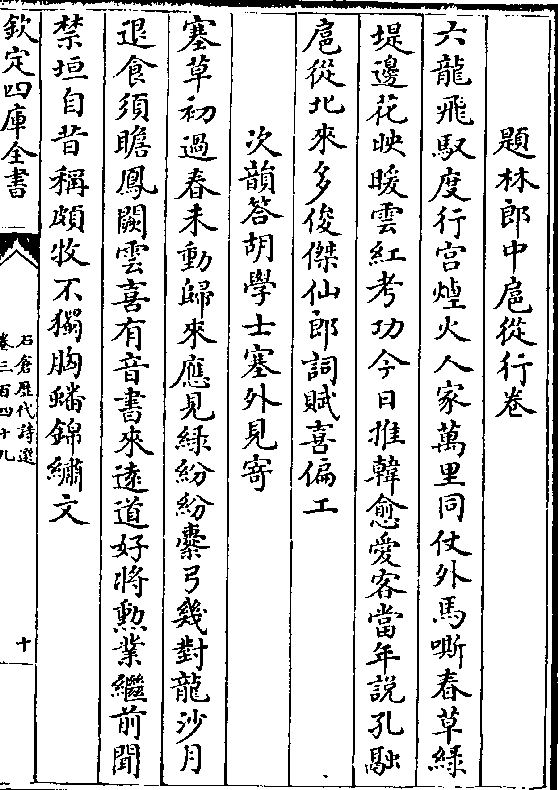 題林郎中扈從行卷
六龍飛馭度行宫煙火人家萬里同仗外馬嘶春草緑
堤邊花映暖雲紅考功今日推韓愈愛客當年説孔融
扈從北來多俊傑仙郎詞賦喜偏工
次韻答胡學士塞外見寄
塞草初過春未動歸來應見緑紛紛櫜弓幾對龍沙月
退食須瞻鳳闕雲喜有音書來逺道好將勲業繼前聞
禁垣自昔稱頗牧不獨胸蟠錦繡文
欽定四庫全書
石倉歴代詩選
卷三百四十九
十